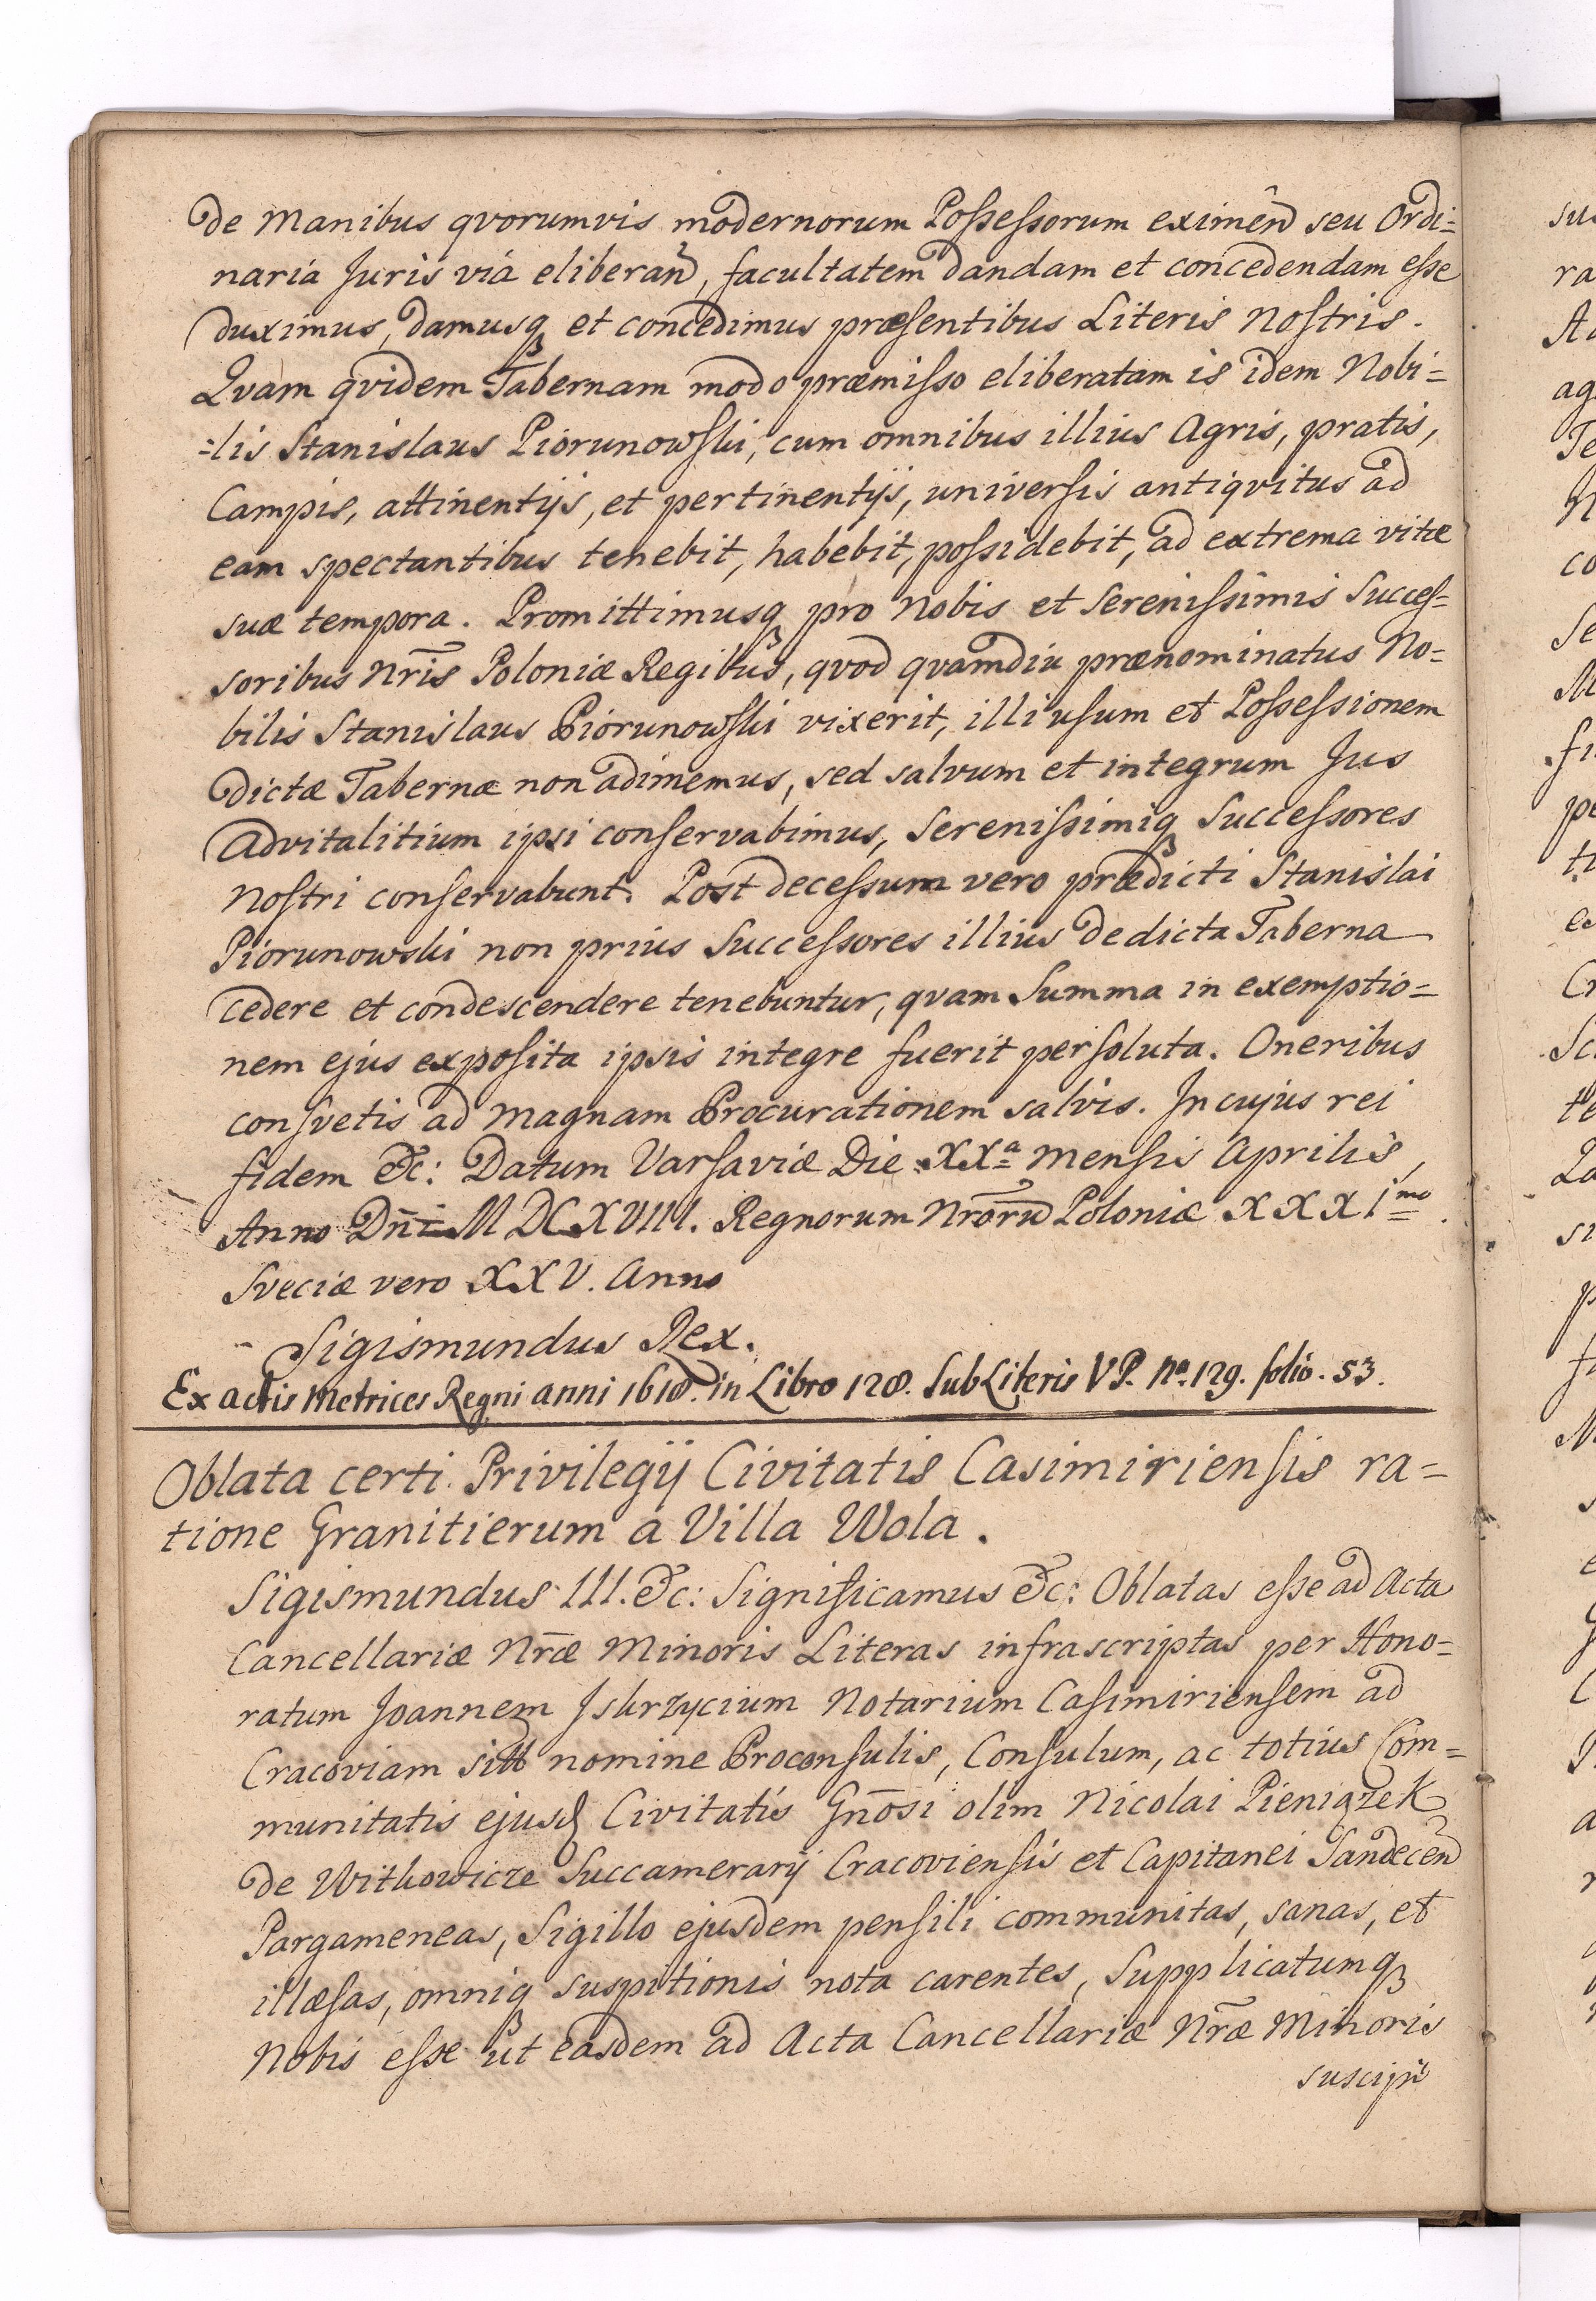 De Manibus qvorumvis modernorum Possessorum eximen̂d seu Ordi=
naria Juris via eliberan̂d, facultatem dandam et concedendam esse
duximus, damusq et concedimus præsentibus Literis Nostris.
Qvam qvidem Tabernam modo præmisso eliberatam is idem Nobi=
=lis Stanislaus Piorunowski, cum omnibus illius Agris, pratis,
Campis, attinentijs, et pertinentijs, universis antiqvitus ad
eam spectantibus tenebit, habebit, possidebit, ad extrema vitæ
suæ tempora. Promittimusq pro Nobis et Serenissimis Succes=
soribus Nr̄is Poloniæ Regibus, qvod qvamdiu prænominatus No=
bilis Stanislaus Piorunowski vixerit, illi usum et Possessionem
Dictæ Tabernæ non adimemus, sed salvum et integrum Jus
Advitalitium ipsi conservabimus, Serenissimiq Successores
Nostri conservabunt. Post decessum vero prædicti Stanislai
Piorunowski non prius Successores illius de dicta Taberna
cedere et condescendere tenebuntur, qvam Summa in exemptio=
nem ejus exposita ipsis integre fuerit persoluta. Oneribus
consvetis ad Magnam Procurationem salvis. In cujus rei
fidem &c: Datum Varsaviæ Die XXa Mensis Aprilis,
Anno Dn̄i MDCXVIII. Regnorum Nrōrū Poloniæ XXXImo.
Sveciæ vero XXV. Anno
Sigismundus Rex.
Ex actis Metrices Regni anni 1618. in Libro 128. Sub Literis VP. No. 129. folio. 53.
Oblata certi Privilegij Civitatis Casimiriensis ra=
tione Granitierum a Villa Wola.
Sigismundus III. &c: Significamus &c: Oblatas esse ad Acta
Cancellariæ Nr̄æ Minoris Literas infrascriptas per Hono=
ratum Joannem Iskrzycium Notarium Casimiriensem ad
Cracoviam nomine Proconsulis, Consulum, ac totius Com=
munitatis ejusd Civitatis Gn̄osi olim Nicolai Pieniązek
de Withowicze Succamerarij Cracoviensis et Capitanei Sandecen̄
Pargameneas, Sigillo ejusdem pensili communitas, sanas, et
illæsas, omniq suspitionis nota carentes, Supplicatumq
Nobis esse ut easdem ad Acta Cancellariæ Nr̄æ Minoris
suscipi